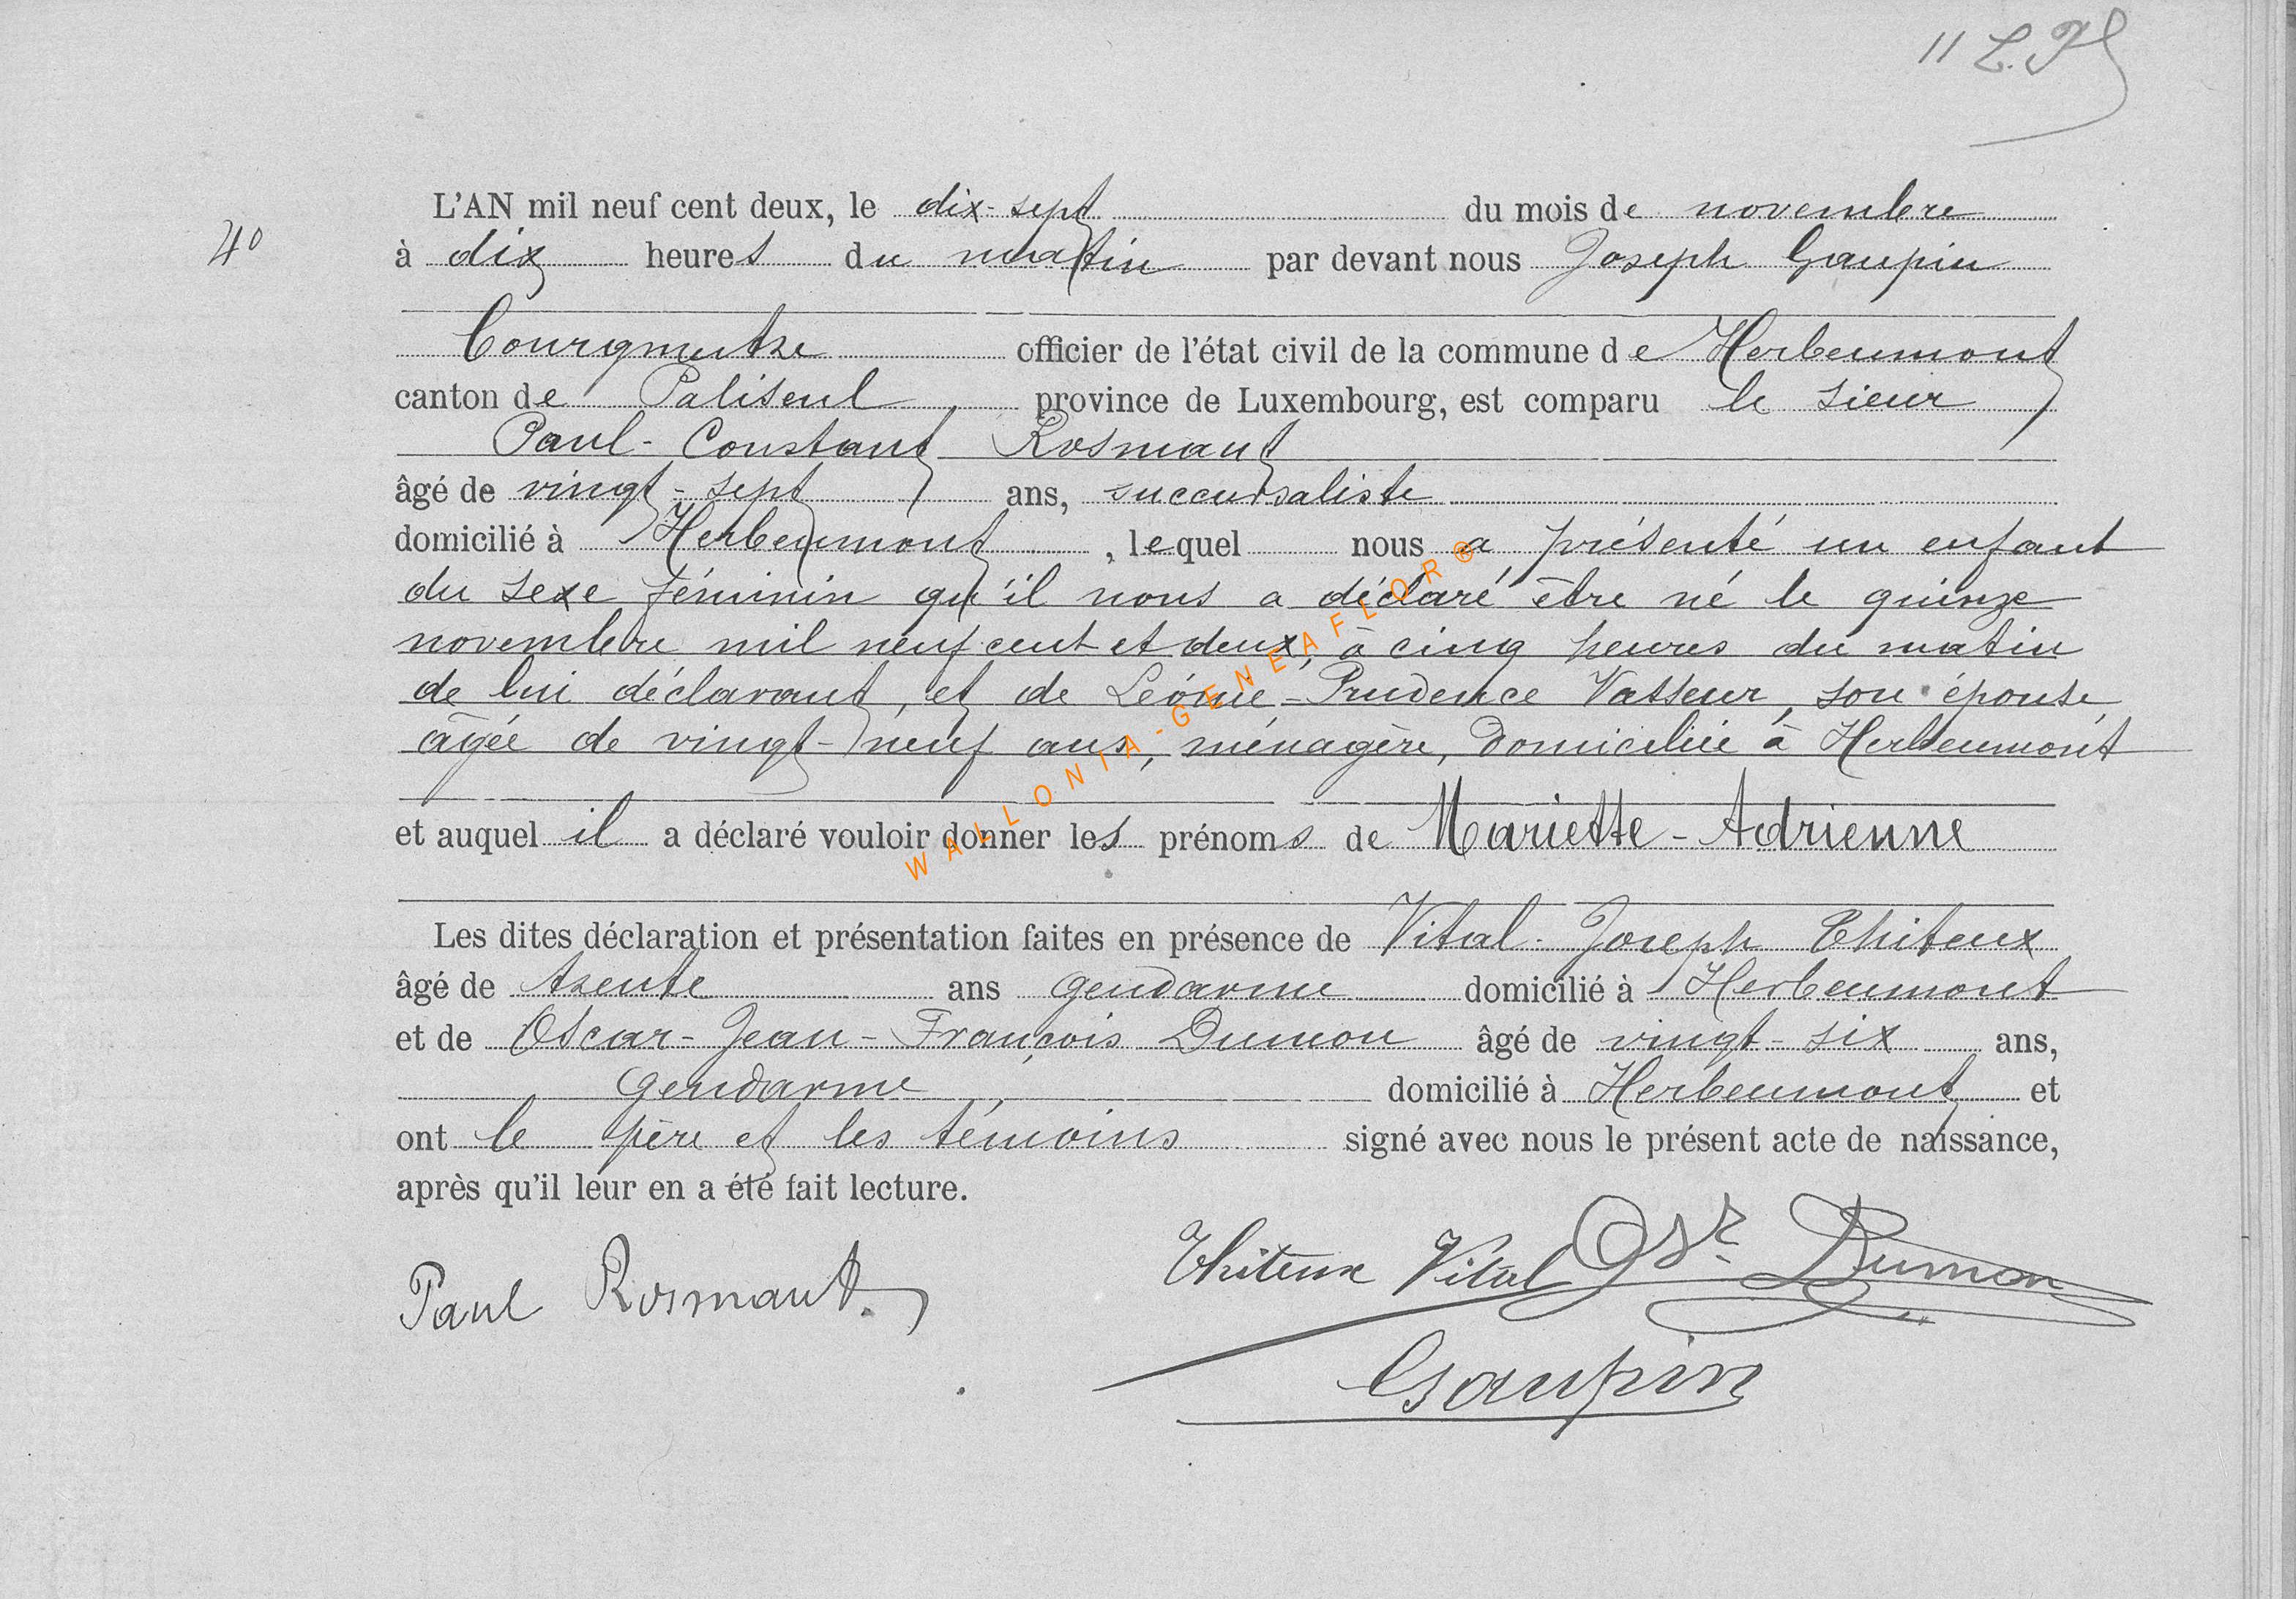 11
40
L'AN mil neuf cent deux, le dix-sept du mois de novembre
à dix heures du matin par devant nous Joseph Gaupin
Bourgmestre officier de l'état civil de la commune de Herbeumont
canton de Paliseul province de Luxembourg, est comparu le sieur
Paul-Constant Rosmant
âgé de vingt-sept ans, succursaliste
domicilié à Herbeumont, lequel nous a présenté un enfant
du sexe féminin qu'il nous a déclaré être né le quinze
novembre mil neuf cent et deux, à cinq heures du matin
de lui déclarant, et de Léonie-Prudence Vasseur, son épouse,
âgée de vingt-neuf ans, ménagère, domiciliée à Herbeumont
et auquel il a déclaré vouloir donner les prénoms de Mariette-Adrienne
Les dites déclaration et présentation faites en présence de Vital-Joseph Thiteux
âgé de trente ans gendarme domicilié à Herbeumont
et de Oscar-Jean-François Dumon âgé de vingt-six ans,
gendarme domicilié à Herbeumont et
ont le père et les témoins signé avec nous le présent acte de naissance,
après qu'il leur en a été fait lecture.
Paul Rosmant. Thiteux Vital Osr Dumon
Gaupin
WALLONIA-GENEAFLOR®